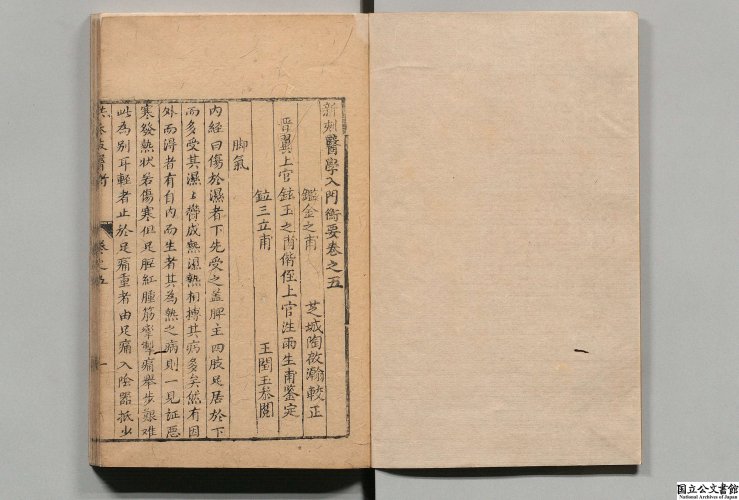 新刻醫學入門衡要卷之五
鑑金之甫 芝城陶欽瀚較正
晋翼上官 鉉玉之甫偕侄上官 雨生甫鉴定
鉝三立甫 王 玉叅閱
脚氣
内經曰傷於濕者下先受之盖脾主四肢足居於下
而多受其濕濕欝成熱濕熱相搏其病多矣然有因
外而淂者有自内而生者其為熱之病則一見証惡
寒發熱状若傷寒但足脛紅腫筋攣掣痛舉步艱难
此為别耳輕者止於足痛重者由足痛入陰器抵少
卷之五
一
国立公文書館
National Archives of Japan